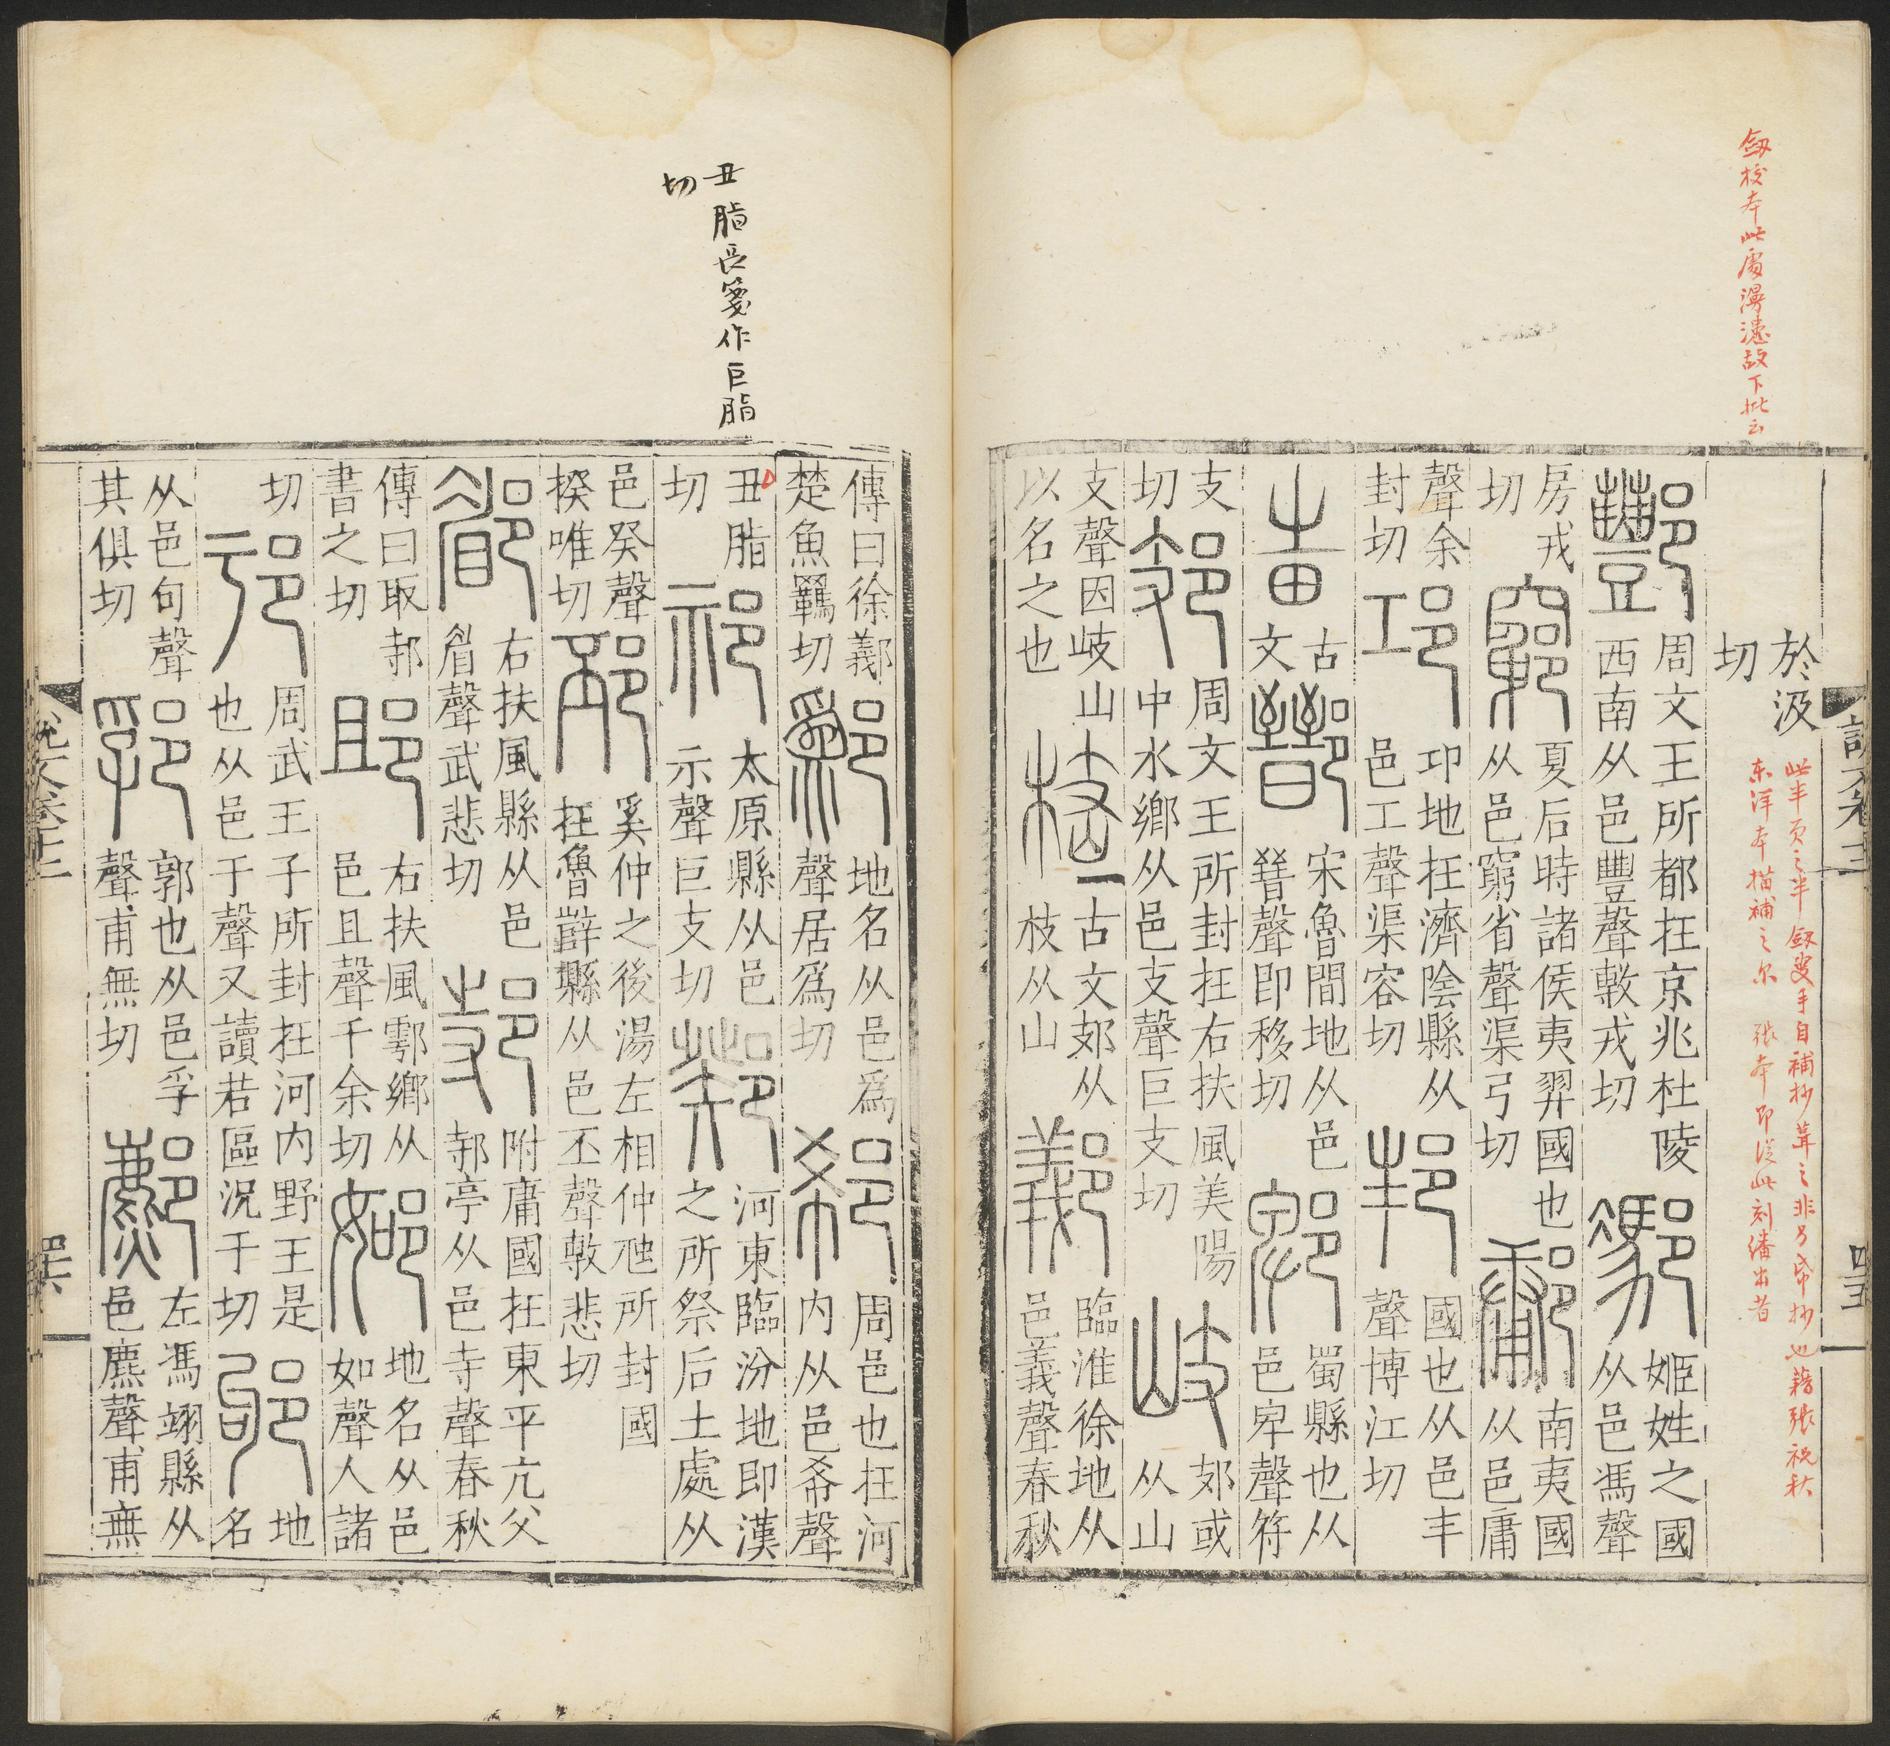 劔校本此處漫漶故下批云
於汲
切
此半頁之半劔叟手自補抄葺之非另帋抄也藉張祝秋
东洋本描補之尔 張本即從此刻繙出者
酆
周文王所都在京兆杜陵
西南从邑豐聲敷戎切
䣕
姬姓之國
从邑馮聲
房戎
切
竆
夏后時諸侯夷羿國也
从邑窮省聲渠弓切
鄘
南夷國
从邑庸
聲余
封切
邛
邛地在濟陰縣从
邑工聲渠容切
邦
國也从邑丰
聲博江切
古
文
鄑
宋魯間地从邑
晉聲即移切
郫
蜀縣也从
邑卑聲符
支
切
𨙸
周文王所封在右扶風美陽
中水鄉从邑支聲巨支切
岐
𨙸或
从山
支聲因岐山
以名之也
𣗺
古文𨙸从
枝从山
䣡
臨淮徐地从
邑義聲春秋
說文卷十二
四十五
丑脂長箋作巨脂
切
傳曰徐䣡
楚魚羈切
鄬
地名从邑爲
聲居爲切
郗
周邑也在河
内从邑希聲
丑脂
切
祁
太原縣从邑
示聲巨支切
鄈
河東臨汾地即漢
之所祭后土處从
邑癸聲
揆唯切
邳
奚仲之後湯左相仲虺所封國
在魯薛縣从邑丕聲敷悲切
郿
右扶風縣从邑
眉聲武悲切
邿
附庸國在東平亢父
邿亭从邑寺聲春秋
傳曰取邿
書之切
䢸
右扶風鄠鄉从
邑且聲千余切
地名从邑
如聲人諸
切
邘
周武王子所封在河内野王是
也从邑于聲又讀若區況于切
地
名
从邑句聲
其俱切
郛
郭也从邑孚
聲甫無切
鄜
左馮翊縣从
邑麃聲甫無
說文卷十二
四十六